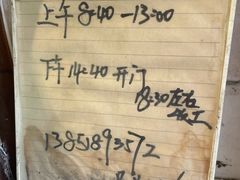 上午 8:40 — 13:00
下午 14:40 开门
18:30左右
13851893572